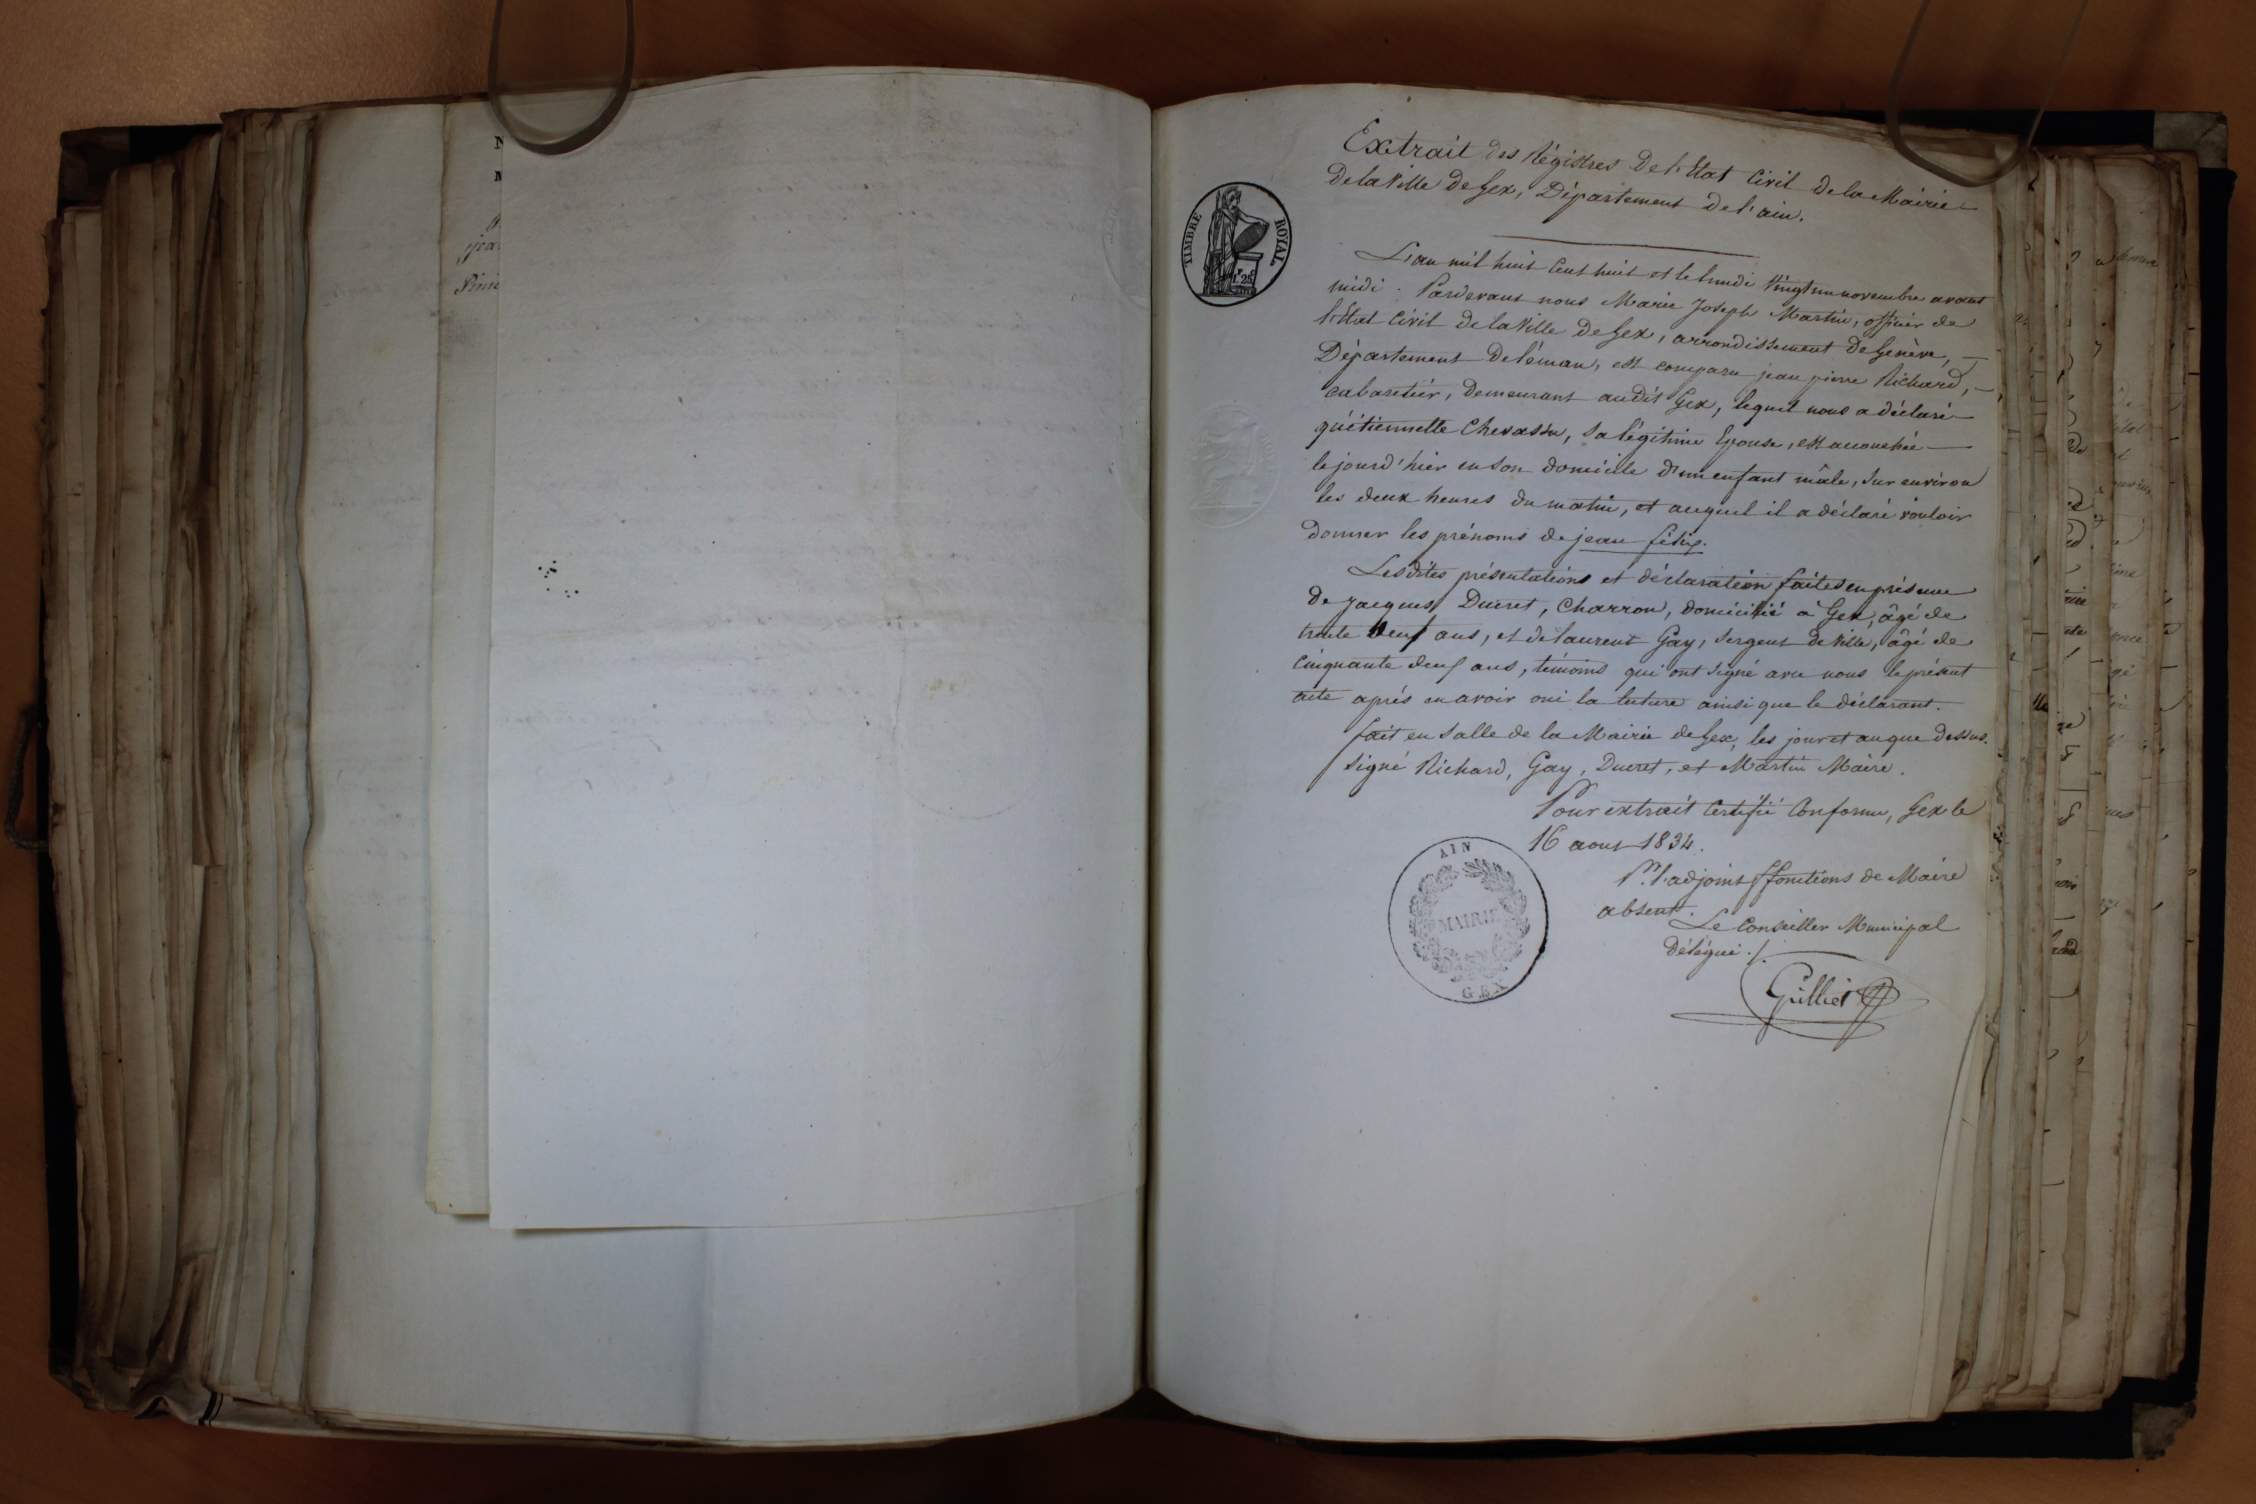 Extrait des Régistres de l'Etat Civil de la Mairie
de la Ville de Gex, Département de l'ain.
TIMBRE ROYAL
1F 25C
L'an mil huit cent huit et le lundi vingt un novembre avant
midi. Pardevant nous Marie Joseph Martin, officier de
l'Etat Civil de la Ville de Gex, arrondissement de Genève,
Département de léman, est comparu jean pierre Richard,
cabaretier, demeurant audit Gex, lequel nous a déclaré
qu'étiennette Chevassu, sa légitime Epouse, est accouchée
le jour d'hier en son domicile d'un enfant mâle, sur environ
les deux heures du matin, et auquel il a déclaré vouloir
donner les prénoms de jean félix.
Lesdites présentations et déclaration faites en présence
de jacques Ducret, Charron, domicilié à Gex, âgé de
trente deux ans, et de laurent Gay, sergent de Ville, âgé de
cinquante deux ans, témoins qui ont signé avec nous le présent
acte après en avoir oui la lecture ainsi que le déclarant.
fait en salle de la Mairie de Gex, les jour et an que dessus.
signé Richard, Gay, Ducret, et Martin Maire.
Pour extrait Certifié Conforme, Gex le
16 aout 1834.
Pr. l'adjoint ffonctions de Maire
absent.
Le Conseiller Municipal
délégué ./.
AIN
MAIRIE
GEX